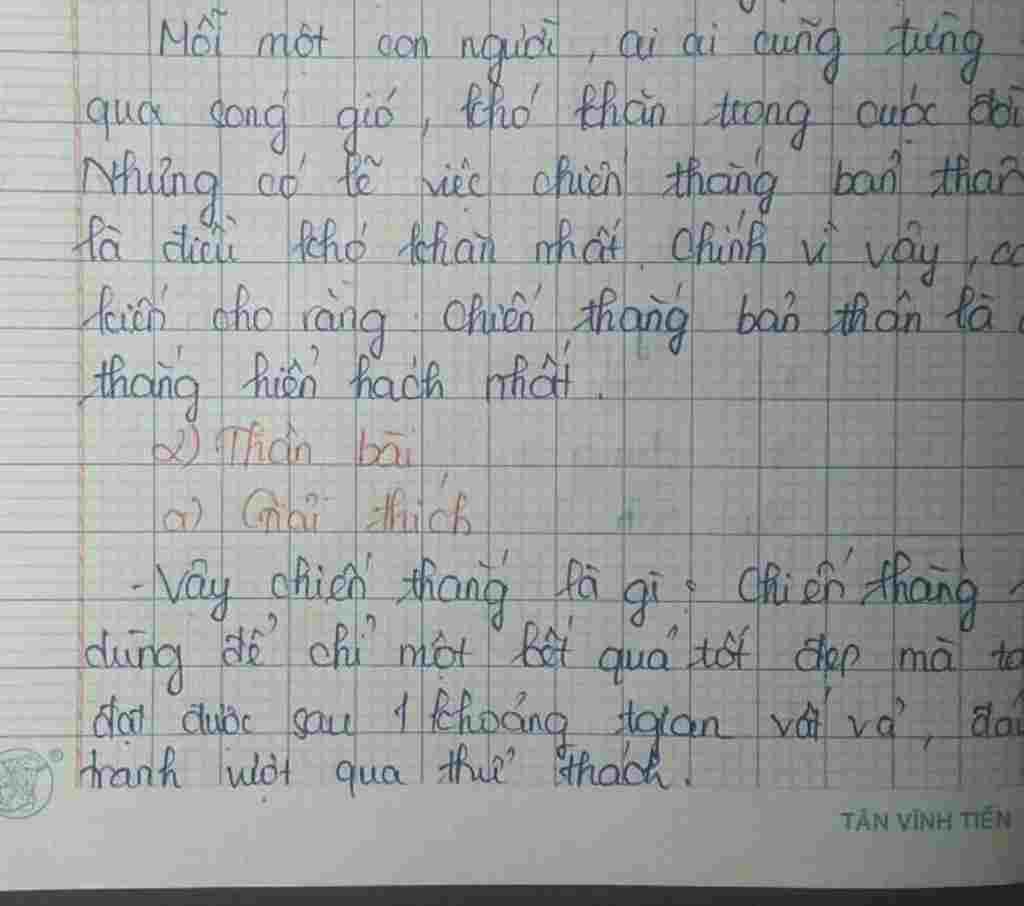 Mỗi một con người, ai ai cũng từng
qua sóng gió, khó khăn trong cuộc đời
Nhưng có lẽ việc chiến thắng bản thân
là điều khó khăn nhất. Chính vì vậy, có
kiến cho rằng: Chiến thắng bản thân là
thắng hiển hách nhất.
2) Thân bài
a) Giải thích
- Vậy chiến thắng là gì? Chiến thắng
dùng để chỉ một kết quả tốt đẹp mà ta
đạt được sau 1 khoảng tgian vất vả, đấu
tranh vượt qua thử thách.
TÂN VĨNH TIẾN